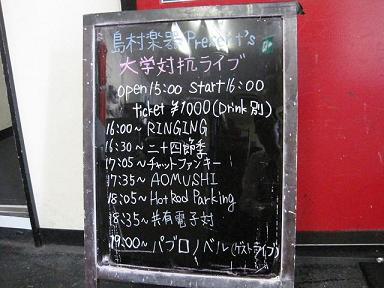 島村楽器 Present's
大学対抗ライブ
open 15:00 start 16:00
ticket ¥1000 (Drink 別)
16:00~ RINGING
16:30~ 二十四節季
17:05~ チャットファンキー
17:35~ AOMUSHI
18:05~ Hot Rod Parking
18:35~ 共有電子対
19:00~ パブロノベル (ゲストライブ)